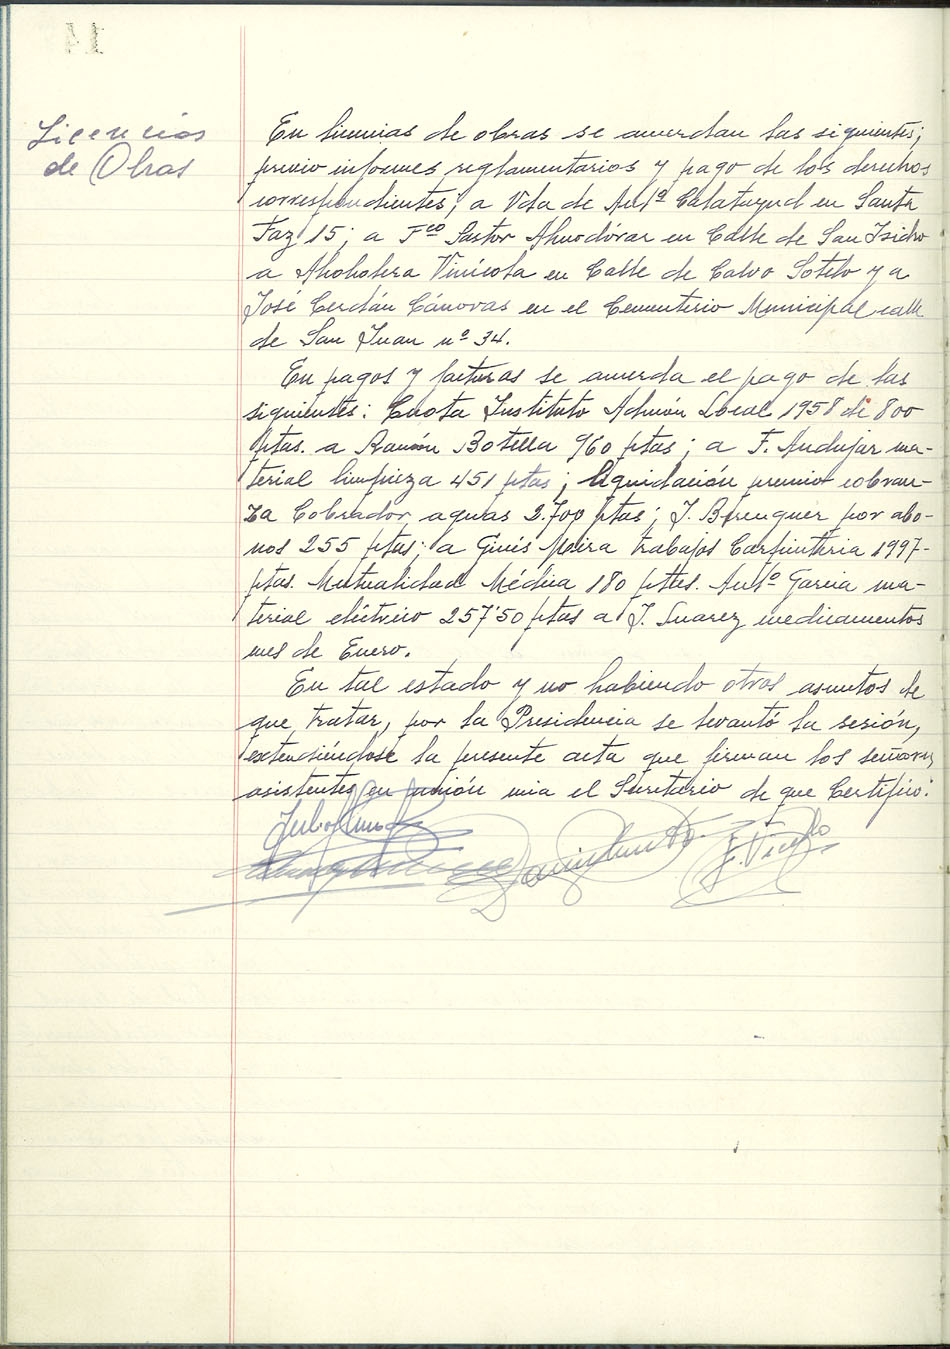 Licencias
de Obras
En licencias de obras se acuerdan las siguientes;
previo informes reglamentarios y pago de los derechos
correspondientes; a Vda de Antº Calatayud en Santa
Faz 15; a Fco Pastor Almodóvar en Calle de San Isidro
a Alcoholera Vinícola en Calle de Calvo Sotelo y a
José Cerdán Cánovas en el Cementerio Municipal calle
de San Juan nº 34.
En pagos y facturas se acuerda el pago de las
siguientes: Cuota Instituto Admón Local 1958 de 800
ptas. a Ramón Botella 960 ptas; a F. Andujar ma-
terial limpieza 451 ptas; liquidación premio cobran-
za Cobrador aguas 2.700 ptas; J. Berenguer por abo-
nos 255 ptas; a Ginés Mira trabajos Carpintería 1997-
ptas. Mutualidad Médica 180 pttes. Antº Garcia ma-
terial eléctrico 257'50 ptas a J. Suarez medicamentos
mes de Enero.
En tal estado y no habiendo otros asuntos de
que tratar, por la Presidencia se levantó la sesión,
extendiéndose la presente acta que firman los señores
asistentes en unión mia el Secretario de que Certifico: